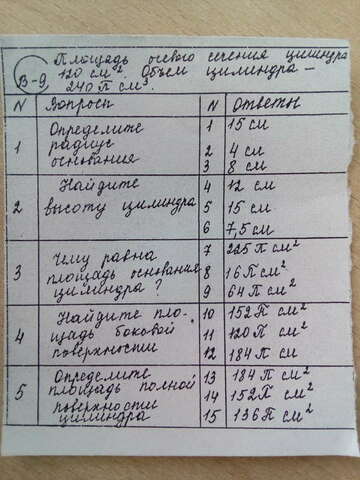 В-9 Площадь осевого сечения цилиндра
120 см². Объем цилиндра –
240 π см³.
N Вопросы N ответы
1 Определите радиус основания
1 15 см
2 4 см
3 8 см
2 Найдите высоту цилиндра
4 12 см
5 15 см
6 7,5 см
3 Чему равна площадь основания цилиндра?
7 225 π см²
8 16 π см²
9 64 π см²
4 Найдите пло-
щадь боковой
поверхности
10 152 π см²
11 120 π см²
12 184 π см
5 Определите
площадь полной
поверхности
цилиндра
13 184 π см²
14 152 π см²
15 136 π см²